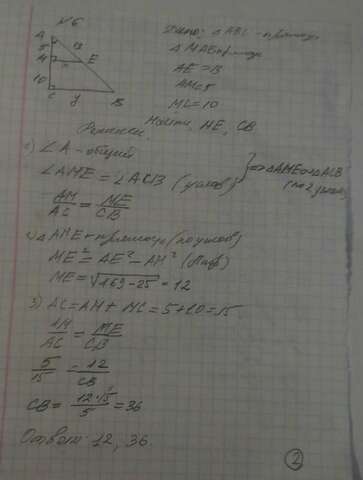 №6
A
5
13
M
E
x
10
C
y
B
Дано: △ABC - прямоуг
△MAE прямоуг
AE = 13
AM = 5
MC = 10
Найти: ME, CB
Решение:
1) ∠A - общий
∠AME = ∠ACB (условие) } ⇒ △AME ∞ △ACB
(по 2 углам)
AM/AC = ME/CB
2) △AME - прямоуг (по услов)
ME² = AE² - AM² (Пиф)
ME = √169 - 25 = 12
3) AC = AM + MC = 5 + 10 = 15
AM/AC = ME/CB
5/15 = 12/CB
CB = 12·15/5 = 36
Ответ: 12, 36.
2